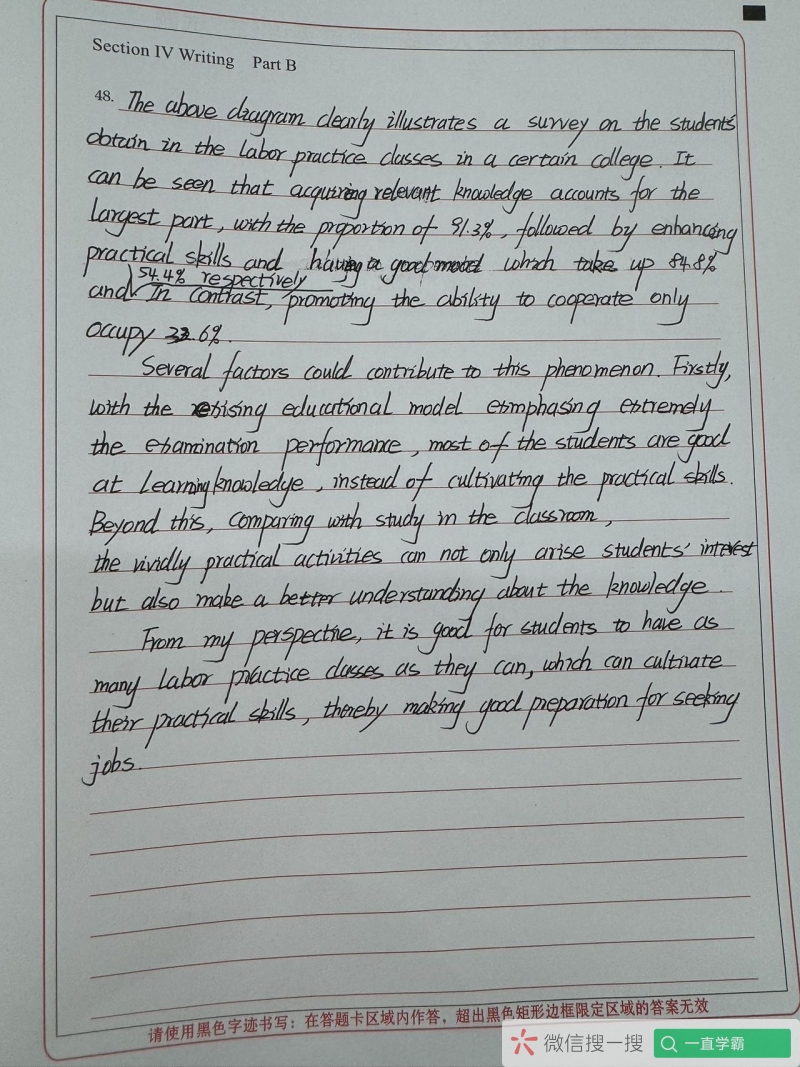 Section IV Writing Part B
48. The above diagram clearly illustrates a survey on the students'
obtain in the labor practice classes in a certain college. It
can be seen that acquiring relevant knowledge accounts for the
largest part, with the proportion of 91.3%, followed by enhancing
practical skills and having a good mood which take up 84.8%
54.4% respectively
and In contrast, promoting the ability to cooperate only
occupy 32.6%.
Several factors could contribute to this phenomenon. Firstly,
with the educational model extremely
the examination performance, most of the students are good
at learning knowledge, instead of cultivating the practical skills.
Beyond this, comparing with study in the classroom,
the vividly practical activities can not only arise students' interest
but also make a better understanding about the knowledge.
From my perspective, it is good for students to have as
many labor practice classes as they can, which can cultivate
their practical skills, thereby making good preparation for seeking
jobs.
请使用黑色字迹书写;在答题卡区域内作答,超出黑色矩形边框限定区域的答案无效
微信搜一搜 一直学霸